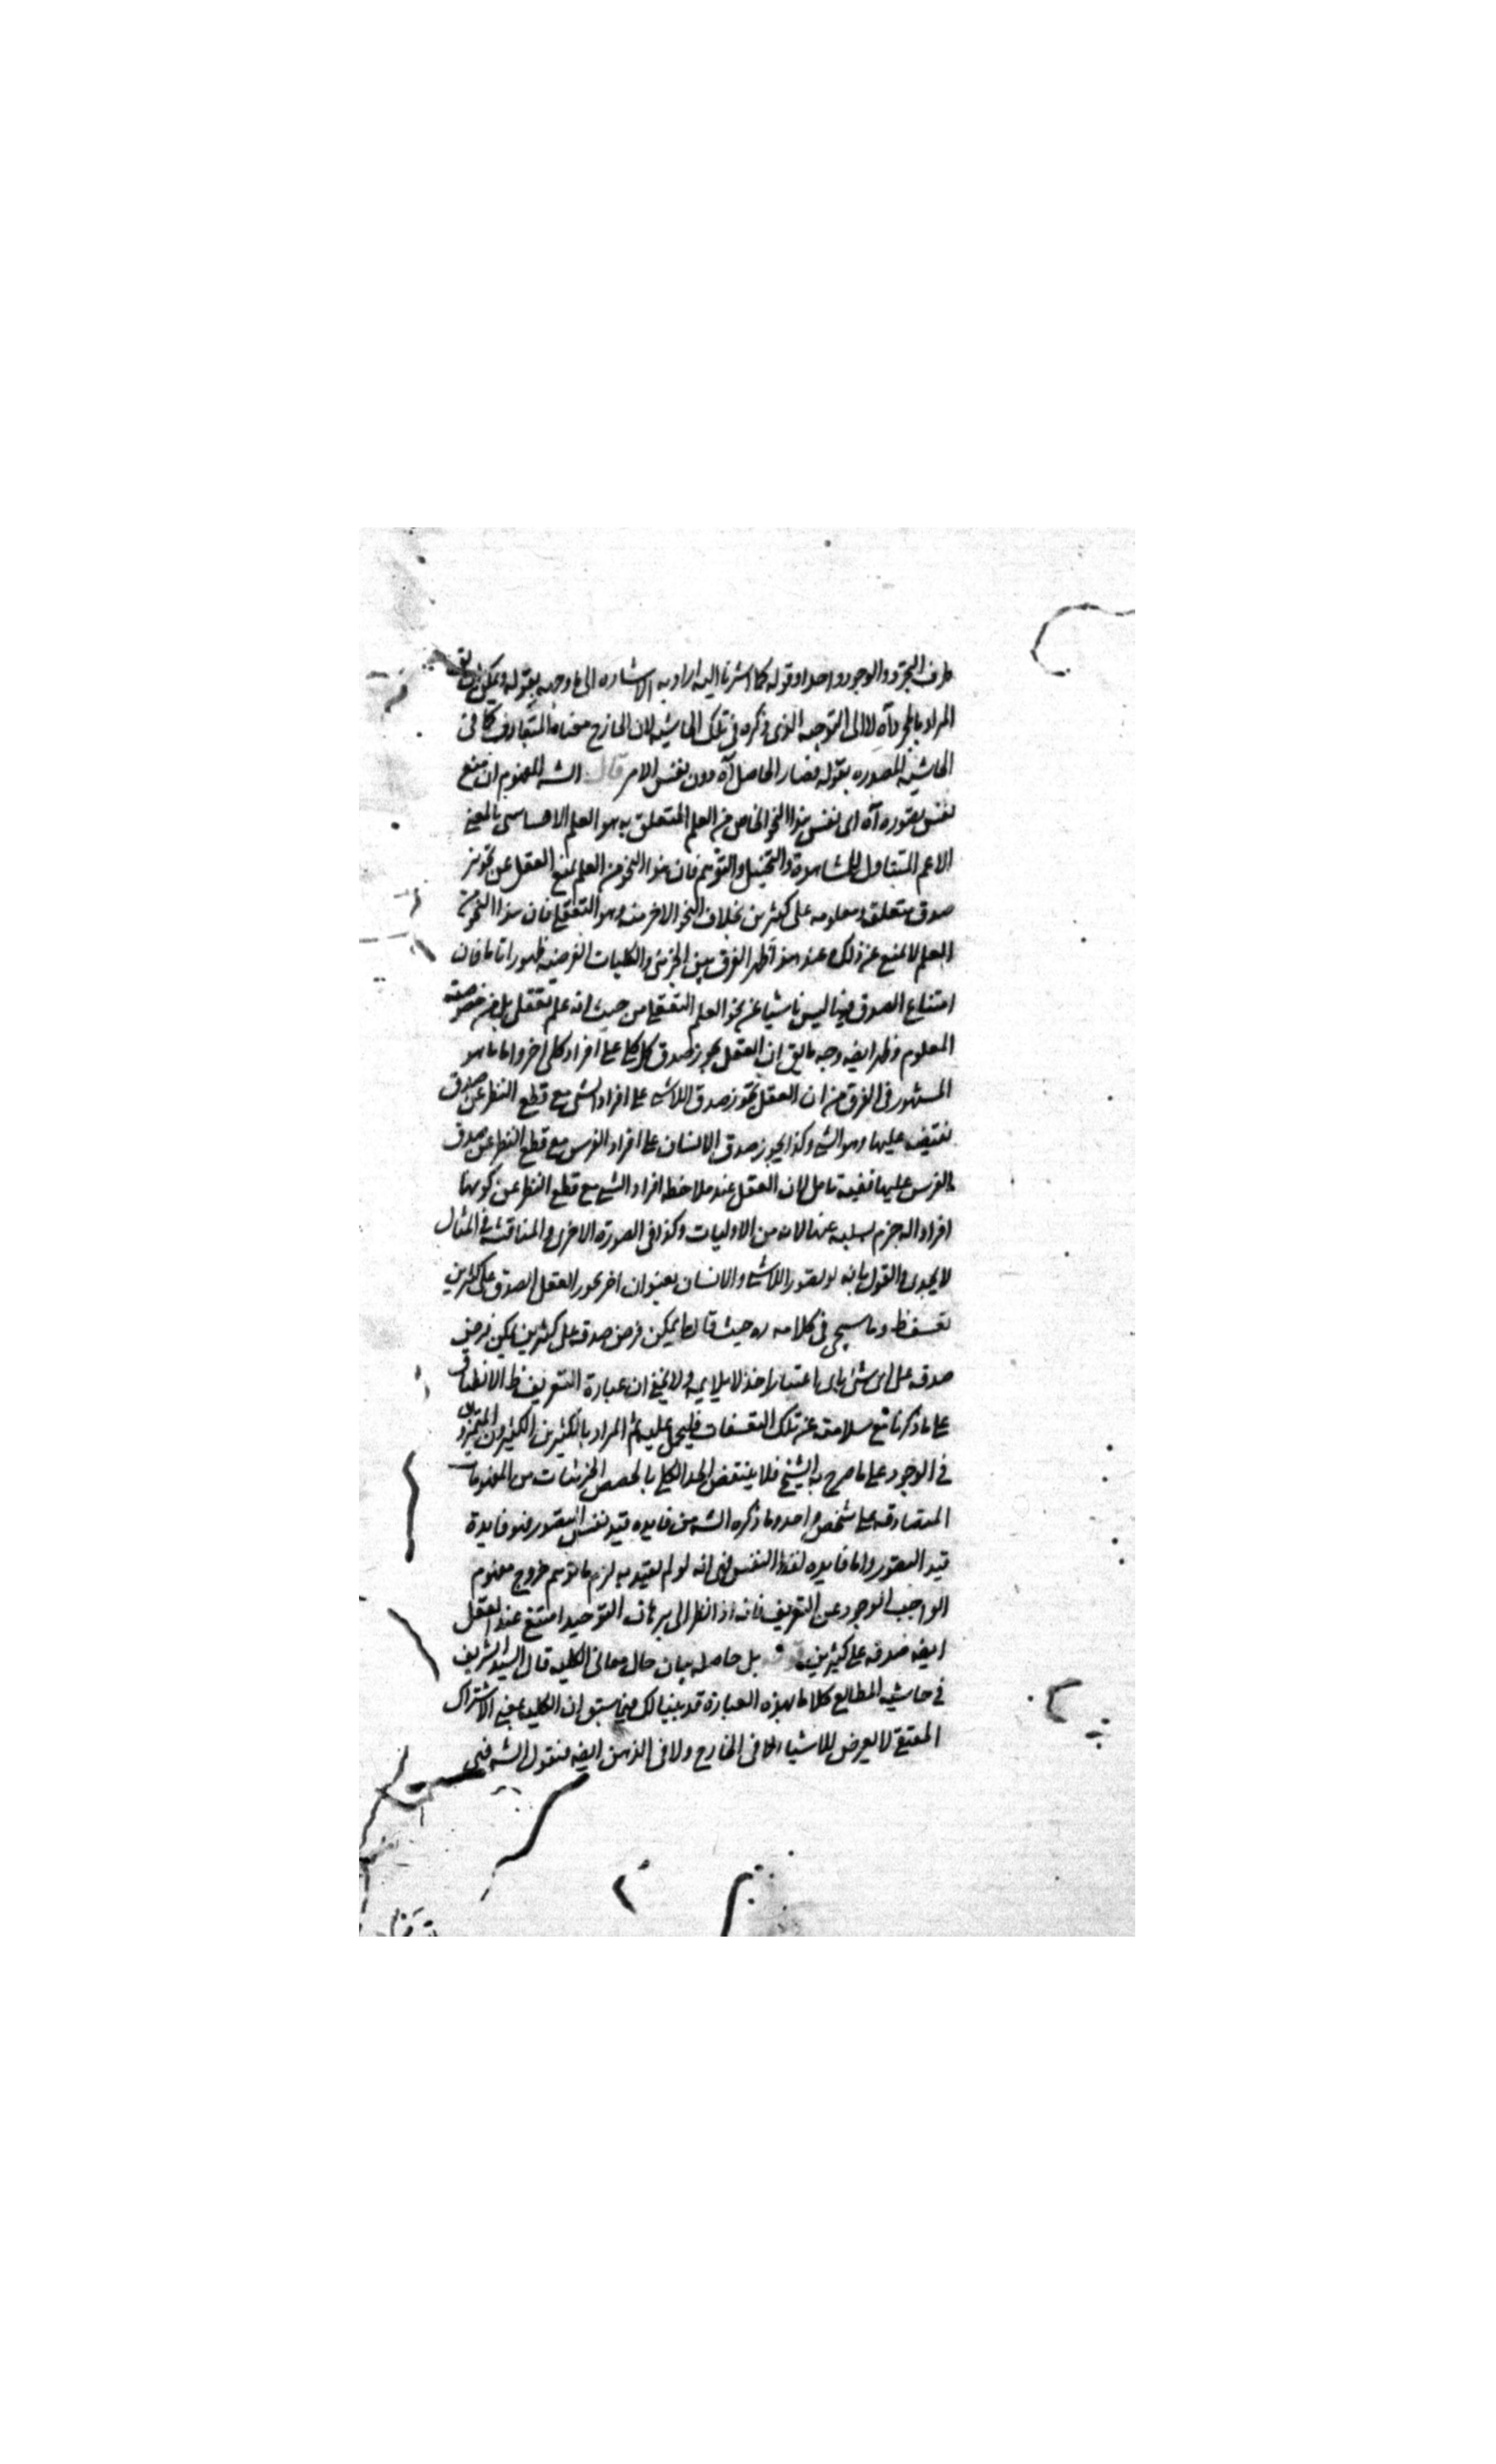 ظرف التجرد والوجود واحدا وقوله كما اشرنا اليه اراد به الاشاره الى ما وجهه بقوله ويمكن ان يق
المراد بالمجرد آه لا الى التوجيه الذى ذكره فى تلك الحاشيه لان الخارج معناه المتعارف كما فى
الحاشية المصدره بقوله فصار الحاصل آه دون نفس الامر قال الشه المفهوم ان منع
نفس تصوره آه اى نفس هذا النحو الخاص من العلم المتعلق به هو العلم الاحساسى بالمعنى
الاعم المتناول للمشاهدة والتخيل والتوهم فان هذا النحو من العلم يمنع العقل عن تجويز
صدق متعلقه ومعلومه على كثيرين بخلاف النحو الاخر منه وهو التعقل فان هذا النحو من
العلم لا يمنع عن ذلك وعند هذا ظهر الفرق بين الجزئى والكليات الفرضيه ظهورا تاما فان
امتناع الصدق فيها ليس ناشيا عن نحو العلم التعقلى من حيث انه علم تعقلى بل من خصوصيته
المعلوم وظهر ايضه وجه ما يق ان العقل يجوز صدق كل كلى على افراد كلى اخر واما ما هو
المشهور فى الفرق من ان العقل يجوز صدق اللاشى على افراد الشى مع قطع النظر عن صدق
نقيضه عليها وهو الشى وكذا يجوز صدق الانسان على افراد الفرس مع قطع النظر عن صدق
الفرس عليها ففيه تامل لان العقل عند ملاحظه افراد الشى مع قطع النظر عن كونها
افراد اله جزم بسلبه عنها لانه من الاوليات وكذا فى الصورة الاخرى والمناقشه فى المثال
لا يجدى والقول بانه لو تصور اللاشى والانسان بعنوان اخر يجوز العقل الصدق على كثيرين
تعسف ظ وما سيجى فى كلامه ره حيث قال ما يمكن فرض صدقه على كثيرين يمكن فرض
صدقه على اى شئ باى اعتبار اخذ لا يلايمه ولا يخفى ان عبارة التعريف ظ الانطباق
على ما ذكرنا مع سلامته عن تلك التعسفات فليحمل عليه ثم المراد بالكثيرين الكثيرون المتمايزون
فى الوجود على ما صرح به الشيخ فلا ينتقض الحد الكلى بالحصص الجزئيات من المفهومات
المتصادقه على شخص واحد وما ذكره الشه من فايده قيد نفس التصور هو فايدة
قيد التصور واما فايده لفظ النفس فهى انه لو لم يقيد به لزم ما توهم خروج مفهوم
الواجب الوجود عن التعريف فانه اذا نظر الى برهان التوحيد امتنع عند العقل
ايضه صدقه على كثيرين بل حاصله بيان حال معانى الكليه قال السيد الشريف
فى حاشيه المطالع كلاما بهذه العبارة قد بينا لك فيما سبق ان الكليه بمعنى الاشتراك
الممتنع لا يعرض للاشياء لا فى الخارج ولا فى الذهن ايضه فنقول الشه فهى